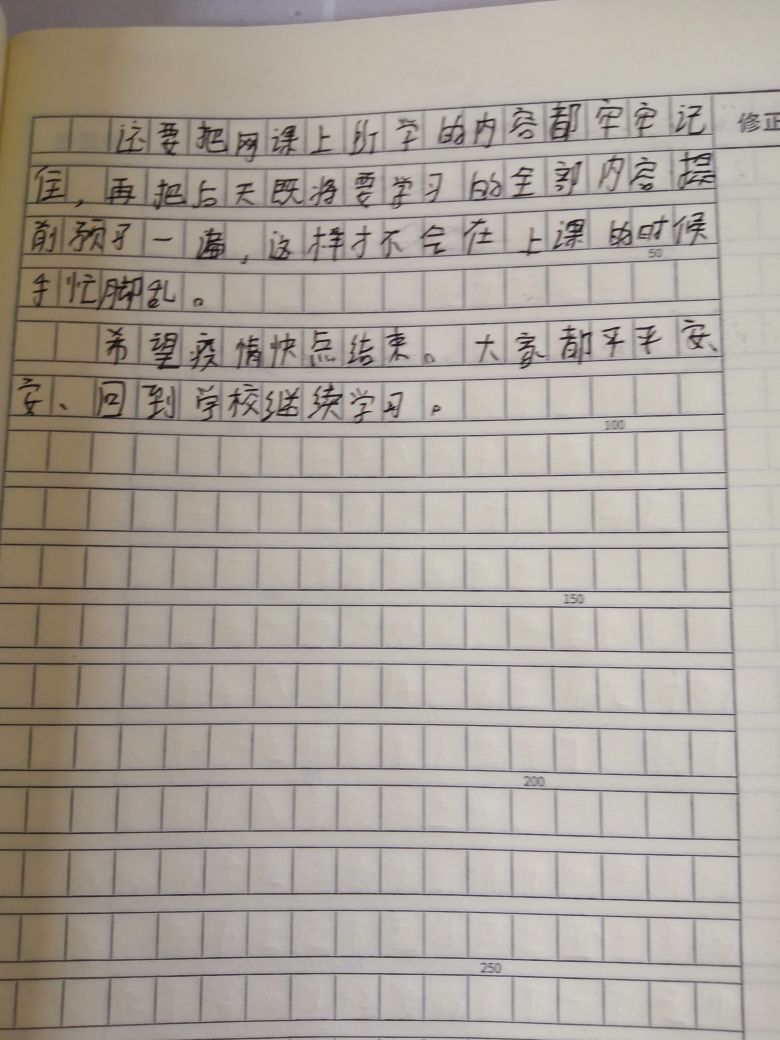 还要把网课上所学的内容都牢牢记 修正
住，再把后天既将要学习的全部内容提
前预习一遍，这样才不会在上课的时候
50
手忙脚乱。
希望疫情快点结束。大家都平平安、
安、回到学校继续学习。
100
150
200
250